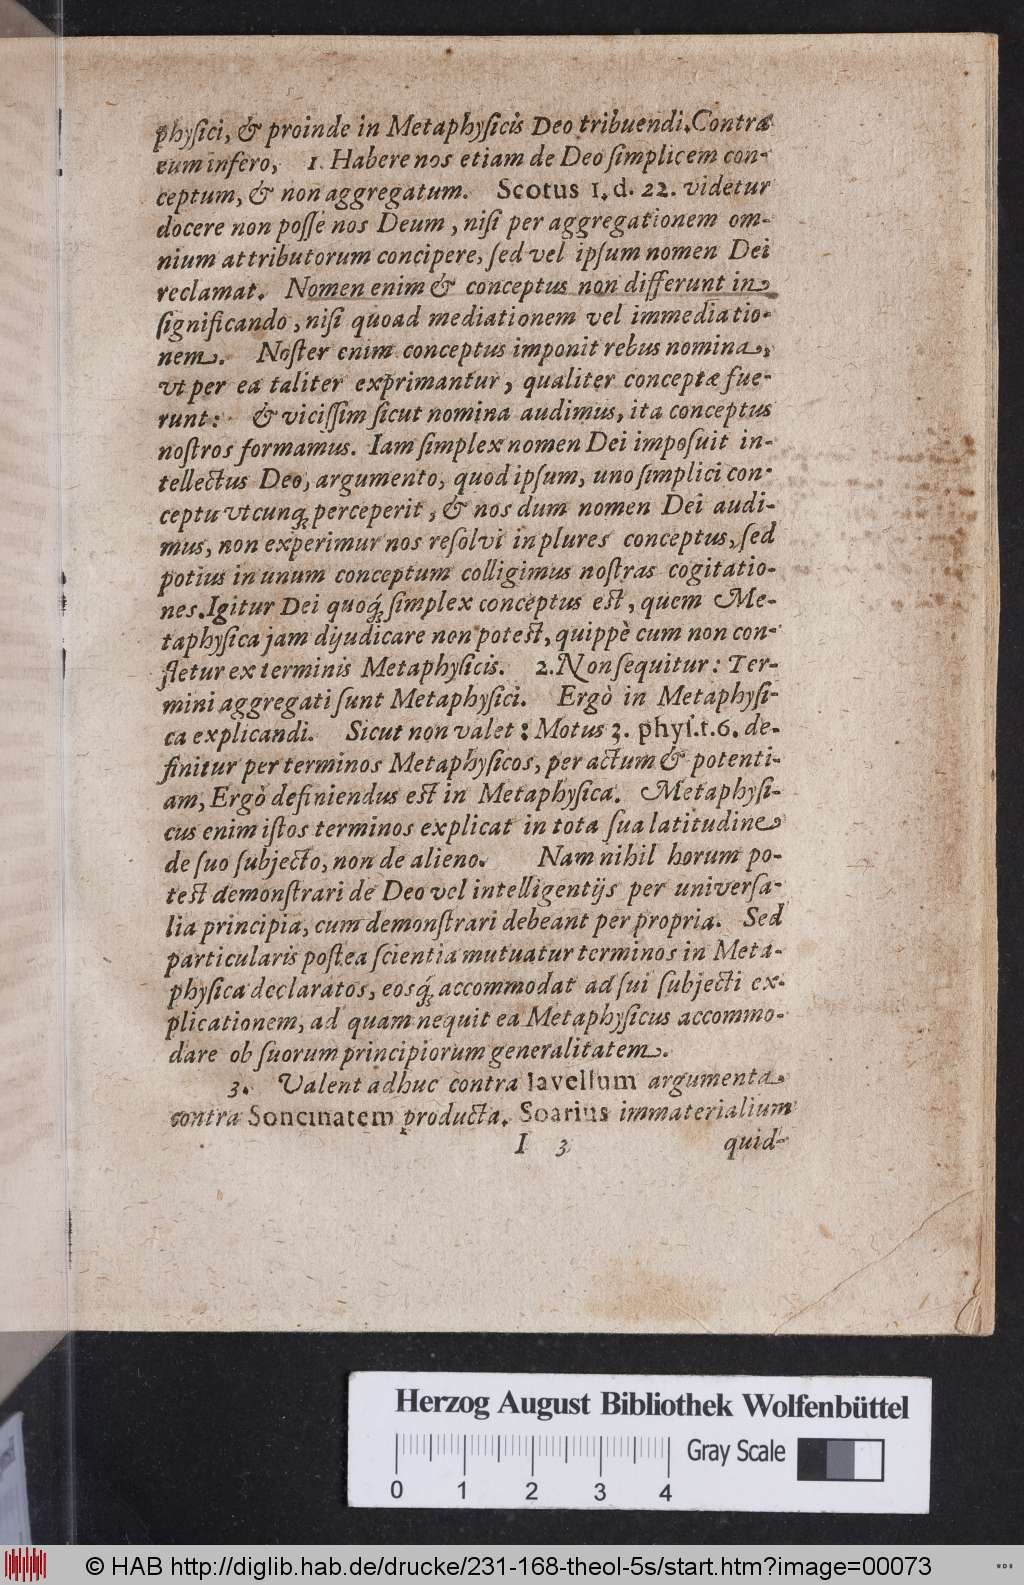 physici, & proinde in Metaphysicis Deo tribuendi. Contra
eum infero, 1. Habere nos etiam de Deo simplicem con-
ceptum, & non aggregatum. Scotus 1. d. 22. videtur
docere non posse nos Deum, nisi per aggregationem om-
nium attributorum concipere, sed vel ipsum nomen Dei
reclamat. Nomen enim & conceptus non differunt in
significando, nisi quoad mediationem vel immediatio-
nem. Noster enim conceptus imponit rebus nomina,
vt per ea taliter exprimantur, qualiter conceptæ fue-
runt: & vicissim sicut nomina audimus, ita conceptus
nostros formamus. Iam simplex nomen Dei imposuit in-
tellectus Deo, argumento, quod ipsum, uno simplici con-
ceptu vtcunq; perceperit, & nos dum nomen Dei audi-
mus, non experimur nos resolvi in plures conceptus, sed
potius in unum conceptum colligimus nostras cogitatio-
nes. Igitur Dei quoq́; simplex conceptus est, quem Me-
taphysica jam dijudicare non potest, quippè cum non con-
fletur ex terminis Metaphysicis. 2. Non sequitur: Ter-
mini aggregati sunt Metaphysici. Ergò in Metaphysi-
ca explicandi. Sicut non valet: Motus 3. phys. t. 6. de-
finitur per terminos Metaphysicos, per actum & potenti-
am, Ergò definiendus est in Metaphysica. Metaphysi-
cus enim istos terminos explicat in tota sua latitudine
de suo subjecto, non de alieno. Nam nihil horum po-
test demonstrari de Deo vel intelligentijs per universa-
lia principia, cum demonstrari debeant per propria. Sed
particularis postea scientia mutuatur terminos in Meta-
physica declaratos, eosq́; accommodat ad sui subjecti ex-
plicationem, ad quam nequit ea Metaphysicus accommo-
dare ob suorum principiorum generalitatem.
3. Valent adhuc contra Iavellum argumenta
contra Soncinatem producta. Soarius immaterialium
I 3 quid-
Herzog August Bibliothek Wolfenbüttel
Gray Scale
0 1 2 3 4
© HAB http://diglib.hab.de/drucke/231-168-theol-5s/start.htm?image=00073